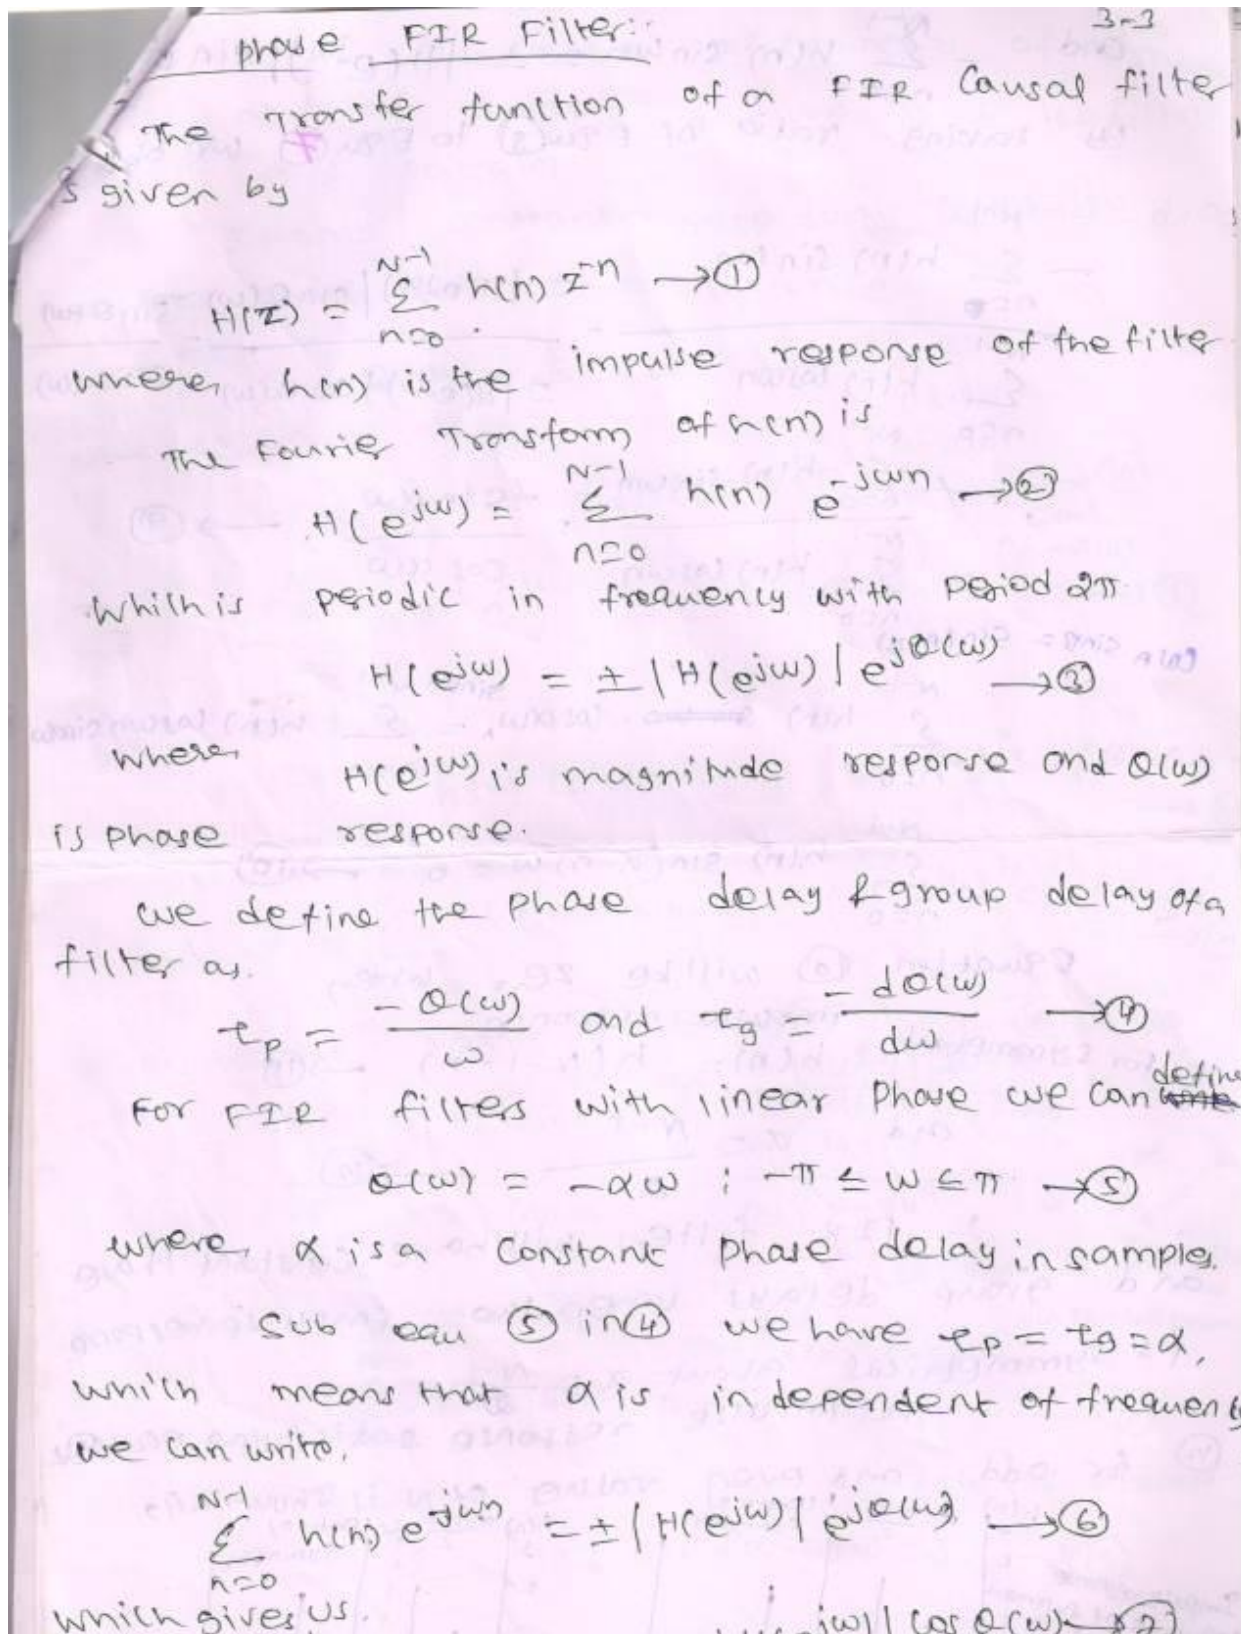 phase FIR Filter:
3-3
The Transfer function of a FIR Causal filter
is given by
H(Z) = \sum_{n=0}^{N-1} h(n) Z^{-n} → ①
where, h(n) is the impulse response of the filter
The Fourier Transform of h(n) is
H(e^{jω}) = \sum_{n=0}^{N-1} h(n) e^{-jωn} → ②
Which is periodic in frequency with period 2π
H(e^{jω}) = ± |H(e^{jω})| e^{jθ(ω)} → ③
where, H(e^{jω}) is magnitude response and θ(ω)
is phase response.
we define the phase delay & group delay of a
filter as.
τ_p = \frac{-θ(ω)}{ω} and τ_g = \frac{-dθ(ω)}{dω} → ④
For FIR filters with linear phase we can define
θ(ω) = -αω ; -π ≤ ω ≤ π → ⑤
where, α is a constant phase delay in samples.
Sub equ ⑤ in ④ we have τ_p = τ_g = α,
which means that α is independent of frequency
we can write,
\sum_{n=0}^{N-1} h(n) e^{-jωn} = ± |H(e^{jω})| e^{jθ(ω)} → ⑥
which gives us.
jω)| cos θ(ω) → 7